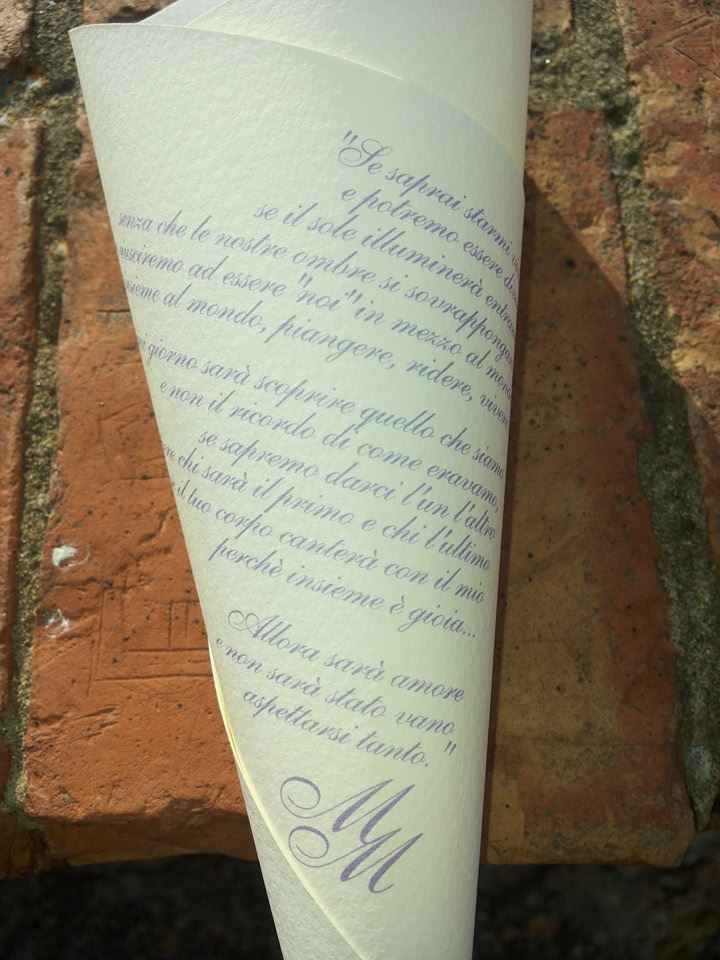 "Se saprai starmi
e potremo essere
se il sole illuminerà
senza che le nostre ombre si
ad essere "noi" in mezzo al
al mondo, piangere, ridere,
giorno sarà scoprire quello che siamo
e non il ricordo di come eravamo,
se sapremo darci l'un l'altro
chi sarà il primo e chi l'ultimo
il tuo corpo canterà con il mio
perchè insieme è gioia...
Allora sarà amore
e non sarà stato vano
aspettarsi tanto."
M
M